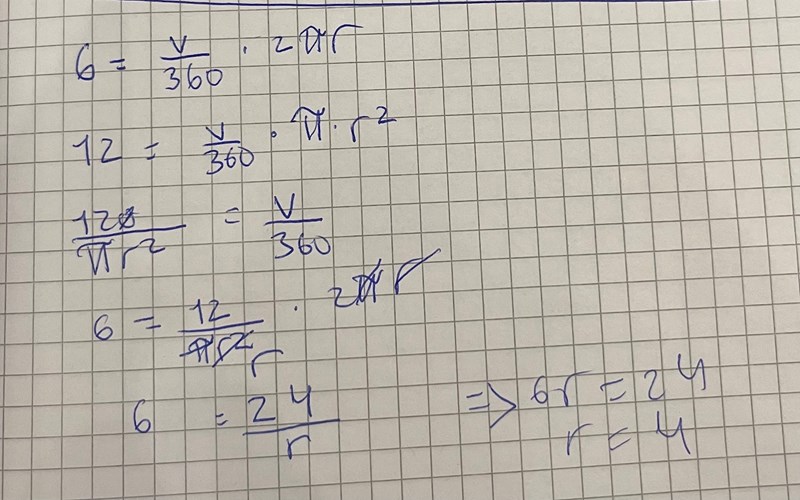 6 = v/360 · 2πr
12 = v/360 · π · r²
12/πr² = v/360
6 = 12/πr² · 2πr
r
6 = 24/r => 6r = 24
r = 4